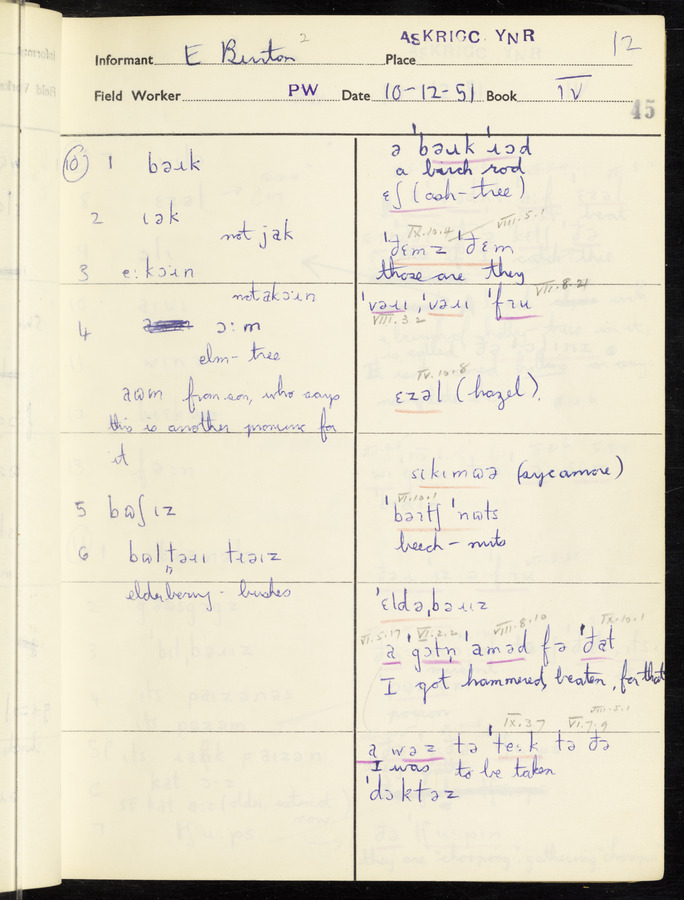 Informant E Burton 2 Place ASKRIGG YNR 12
Field Worker PW Date 10-12-51 Book IV
45
(10) 1 bəɪk
2 ɪak
not jak
3 e:kɔ:n
not akɔ:n
4 ɔ:m
elm-tree
aωm from son, who says
this is another pronunc for
it
5 bωʃɪz
6 bωltəɹɪ tɹəɪz
elderberry-bushes
ə ˈbəɪk ˈɹɔd
a birch rod
ɛʃ (ash-tree)
IX.10.4 VIII.5.1
ˈðɛmz ˈðɛm
those are they
VII.8.21
ˈvəɹɪ, ˈvəɹɪ ˈfɪu
VIII.3 2
IV.10.8
ɛzəl (hazel).
sɪkɪmωə (sycamore)
VI.10.1
ˈbəɪtʃ ˈnωts
beech-nuts
ˈɛldəˌbəɹɪz
VI.5.17 VI.2.2 VIII.8.10 IX.10.1
a ˈgɔtn̩ ˈaməd fə ˈðat
I got hammered, beaten, for that
VIII.5.1
IX.3.7 VI.7.9
a wəz tə ˈte:k tə ðə
I was to be taken
ˈdɔktəz